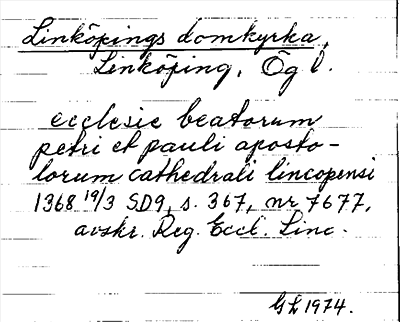 Linköpings domkyrka,
Linköping, Ög l.
ecclesie beatorum
petri et pauli aposto-
lorum cathedrali lincopensi
1368 19/3 SD9, s. 367, nr 7677.
avskr. Reg. Eccl. Linc.
GL 1974.